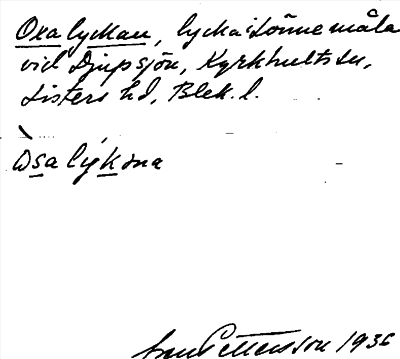 Oxalyckan, lycka i Lönnemåla
vid Djupsjön, Kyrkhults sn,
Listers hd, Blek. l.
Pettersson 1936